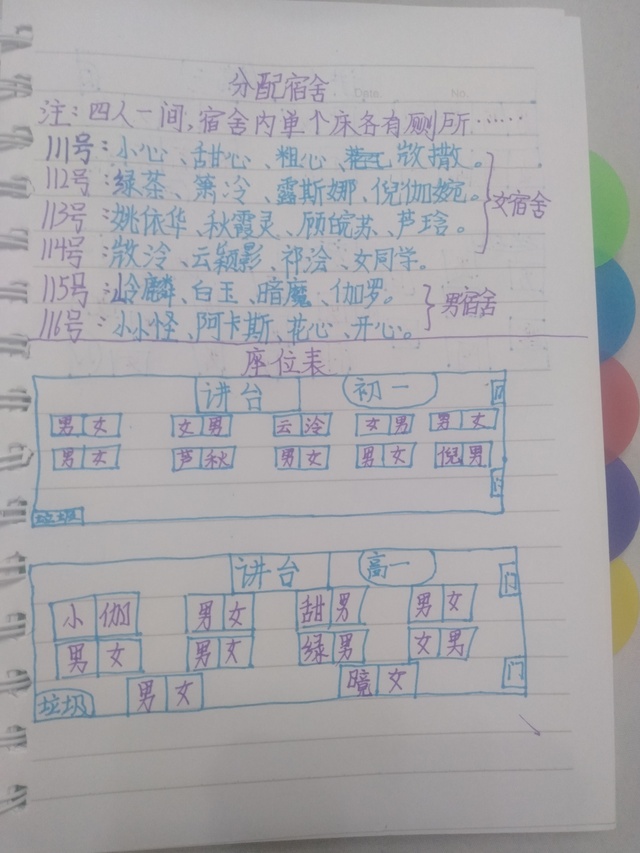 分配宿舍
注：四人一间,宿舍内单个床各有厕所……
111号：小心、甜心、粗心、散撒。
112号：绿茶、箫冷、露斯娜、倪伽婉。
113号：姚依华、秋霞灵、顾皖苏、芦琀。
女宿舍
114号：散泠、云颖影、祁浍、女同学。
115号：岭麟、白玉、暗魔、伽罗。
男宿舍
116号：小小怪、阿卡斯、花心、开心。
座位表
讲台 初一
男女 女男 云泠 女男 男女
门
男女 芦秋 男女 男女 倪男
门
垃圾
讲台 高一
门
小伽 男女 甜男 男女
男女 男女 绿男 女男
门
垃圾 男女 女